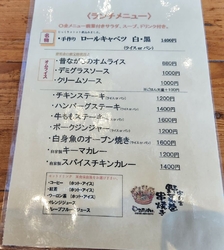 《ランチメニュー》
名物
・手作り ロールキャベツ 白・黒 1400円
(ライス or パン)
オムライス
・昔ながらのオムライス 880円
・デミグラスソース 1000円
・クリームソース 1000円
・チキンステーキ 1200円
・ハンバーグステーキ 1400円
・ポークジンジャー 1200円
・白身魚のオーブン焼き 1600円
・キーマカレー 1200円
・スパイスチキンカレー 1400円
・コーヒー (ホット・アイス)
・紅茶 (ホット・アイス)
・ウーロン茶 (ホット・アイス)
・オレンジジュース
・グレープフルーツジュース
串焼き